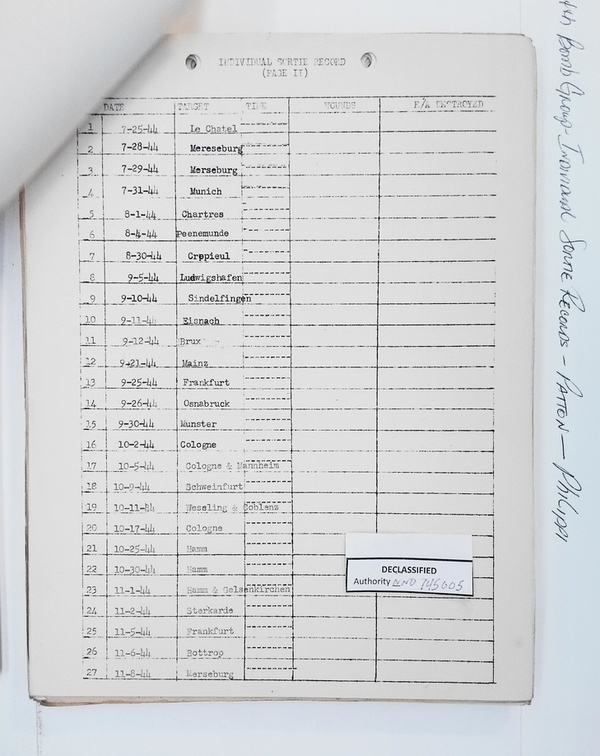 INDIVIDUAL SORTIE RECORD
(PAGE II)
DATE TARGET TIME WOUNDS E/A DESTROYED
1 7-25-44 Le Chatel
2 7-28-44 Mereseburg
3 7-29-44 Merseburg
4 7-31-44 Munich
5 8-1-44 Chartres
6 8-4-44 Peenemunde
7 8-30-44 Crppieul
8 9-5-44 Ludwigshafen
9 9-10-44 Sindelfingen
10 9-11-44 Eisnach
11 9-12-44 Brux
12 9-21-44 Mainz
13 9-25-44 Frankfurt
14 9-26-44 Osnabruck
15 9-30-44 Munster
16 10-2-44 Cologne
17 10-5-44 Cologne & Mannheim
18 10-9-44 Schweinfurt
19 10-11-44 Wesseling & Coblenz
20 10-17-44 Cologne
21 10-25-44 Hamm
22 10-30-44 Hamm
23 11-1-44 Hamm & Gelsenkirchen
24 11-2-44 Sterkarde
25 11-5-44 Frankfurt
26 11-6-44 Bottrop
27 11-8-44 Merseburg
DECLASSIFIED
Authority NND 745005
Bomb Group - Individual Sortie Records - Patton - Philippi